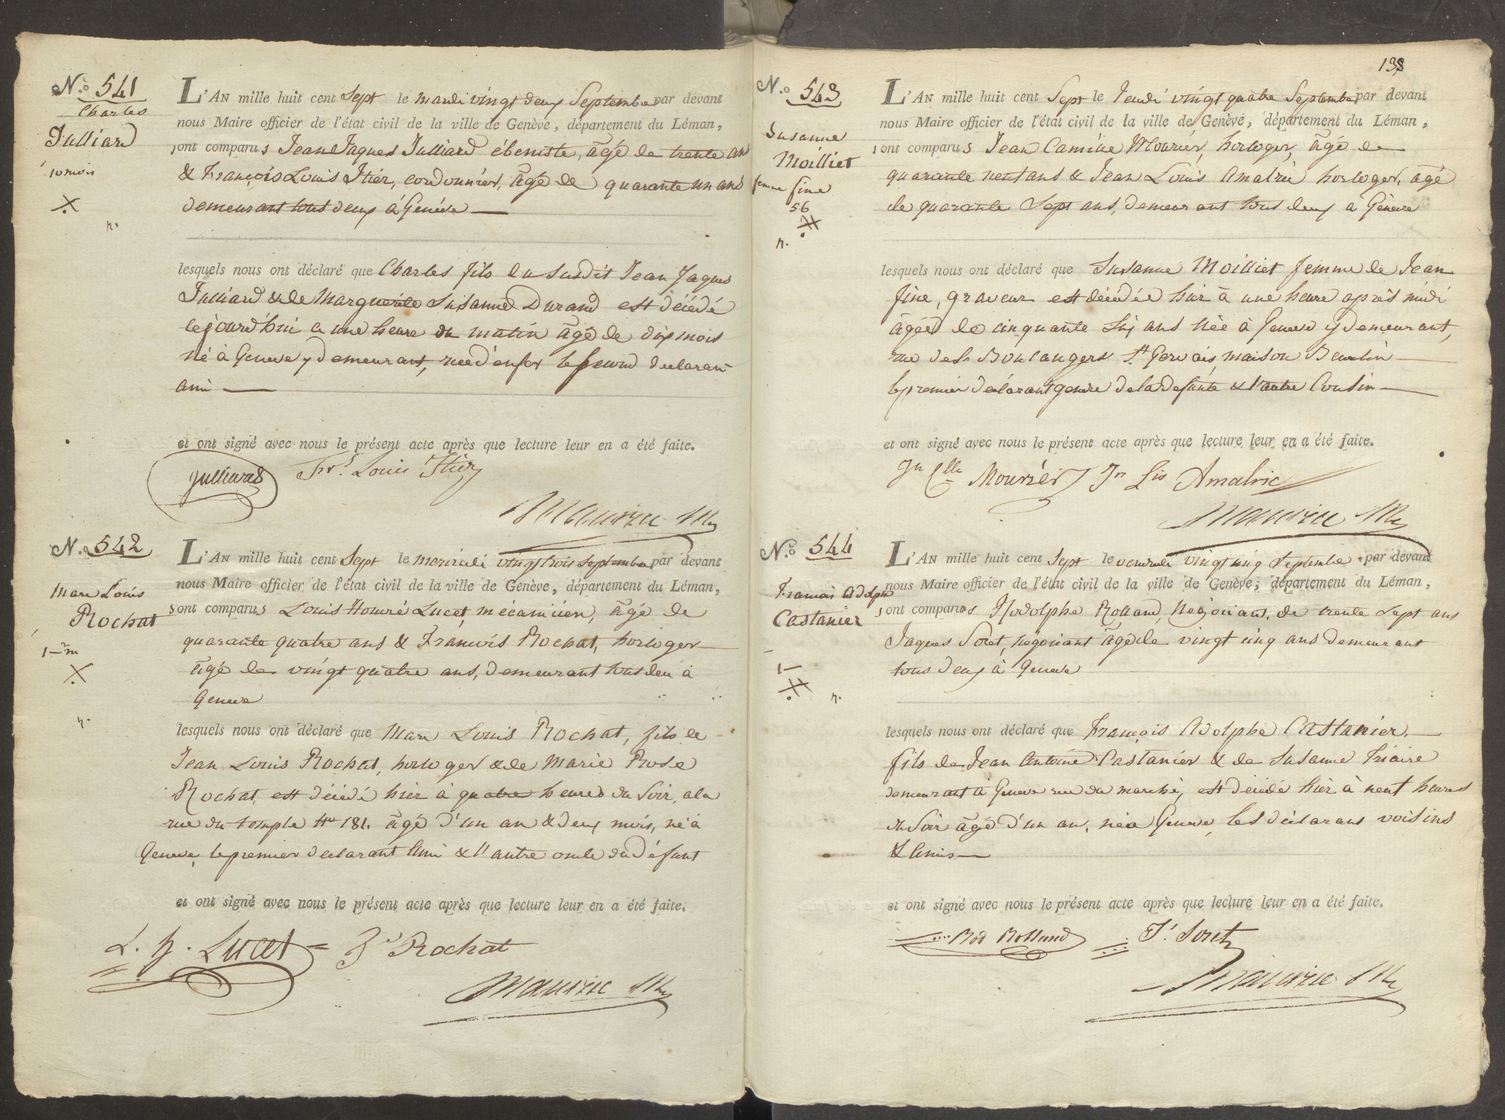 N.º 541
Charles
Julliard
10 mois
n.
L'AN mille huit cent Sept le mardi vingt deux Septembre par devant
nous Maire officier de l'état civil de la ville de Genève, département du Léman,
ont comparus Jean Jaques Julliard ébeniste, âgé de trente ans
& François Louis Itier, cordonnier, âgé de quarante un ans
demeurant tous deux à Genève
lesquels nous ont déclaré que Charles fils du susdit Jean Jaques
Julliard & de Marguerite Susanne Durand est décédé
ce jourd'hui a une heure du matin âgé de dix mois
né à Geneve y demeurant, rue d'enfer le second declarant
ami
et ont signé avec nous le présent acte après que lecture leur en a été faite.
Julliard Fr.s Louis Itier
Maurice
N.º 542
Marc Louis
Rochat
1 - 2 m
n.
L'AN mille huit cent Sept le mercredi vingt trois septembre par devant
nous Maire officier de l'état civil de la ville de Genève, département du Léman,
ont comparus Louis Honoré Lucet mecanicien, âgé de
quarante quatre ans & François Rochat, horloger
âgé de vingt quatre ans, demeurant tous deu à
Geneve
lesquels nous ont déclaré que Marc Louis Rochat, fils de
Jean Louis Rochat, horloger & de Marie Rose
Rochat, est décédé hier à quatre heures du Soir, a la
rue du temple No 181. âgé d'un an & deux mois, né à
Geneve, le premier declarant Ami & l'autre oncle du défunt
et ont signé avec nous le présent acte après que lecture leur en a été faite.
L. h. Lucet Rochat
Maurice
138
N.º 543
Susanne
Moilliet
femme fine
56
n.
L'AN mille huit cent Sept le Jeudi vingt quatre Septembre par devant
nous Maire officier de l'état civil de la ville de Genève, département du Léman,
ont comparus Jean Camille Mourier, horloger, âgé de
quarante neuf ans & Jean Louis Amalric horloger, âgé
de quarante Sept ans, demeurant tous deux a Géneve
lesquels nous ont déclaré que Susanne Moilliet femme de Jean
fine, graveur est décédée hier à une heure après midi
âgée de cinquante Six ans née à Geneve y demeurant,
rue des Boulangers St Gervais maison
le premier declarant gendre de la defunte & l'autre Cousin
et ont signé avec nous le présent acte après que lecture leur en a été faite.
Jn Clle Mourier Jn Lis Amalric
Maurice
N.º 544
François Adolphe
Castanier
1
n.
L'AN mille huit cent Sept le vendredi vingt cinq Septembre par devant
nous Maire officier de l'état civil de la ville de Genève, département du Léman,
ont comparus Rodolphe Rolland, Negociant, de trente sept ans
Jaques Soret, négociant âgé de vingt cinq ans demeurant
tous deux à Geneve
lesquels nous ont déclaré que François Adolphe Castanier
fils de Jean Antoine Castanier & de Susanne Triaire
demeurant à Geneve rue du marché, est décédé hier à neuf heures
du Soir âgé d'un an, né a Geneve, les déclarans voisins
& Amis
et ont signé avec nous le présent acte après que lecture leur en a été faite.
Rod Rolland J. Soret
Maurice